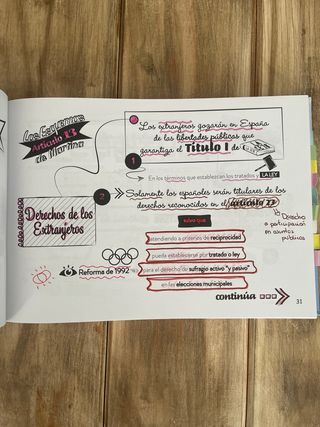 Los Esquemas
Artículo 13
de Martina
Los extranjeros gozarán en España
de las libertades públicas que
garantiza el Título I de
1
En los términos que establezcan los tratados y LA LEY
2
Solamente los españoles serán titulares de los
derechos reconocidos en el artículo 23
Derechos de los
Extranjeros
Derecho
a participación
en asuntos
públicos
salvo que
atendiendo a criterios de reciprocidad
pueda establecerse por tratado o ley
Reforma de 1992
para el derecho de sufragio activo "y pasivo"
en las elecciones municipales
continúa
31